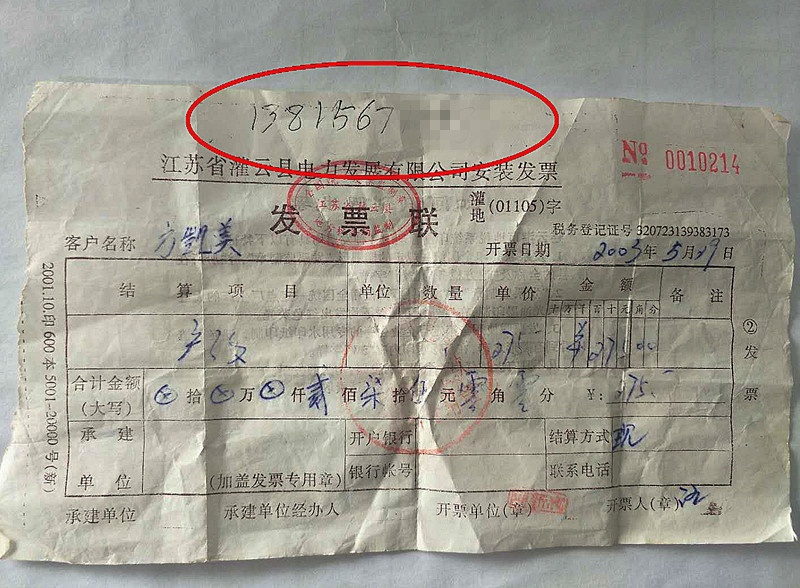 1381567
江苏省灌云县电力发展有限公司安装发票
发票联
灌地(01105)字
№ 0010214
税务登记证号320723139383173
客户名称 方凯美
开票日期 2003年5月29日
结算项目 单位 数量 单价 金额 备注
千万千百十元角分
275 275.00
合计金额(大写) ⊗拾⊗万⊗仟贰佰柒拾伍元零角零分 ¥:275.-
承建单位 (加盖发票专用章) 开户银行 结算方式 现
银行帐号 联系电话
承建单位 承建单位经办人 开票单位(章) 开票人(章)
②发票
2001.10印600本5001-20000号(新)